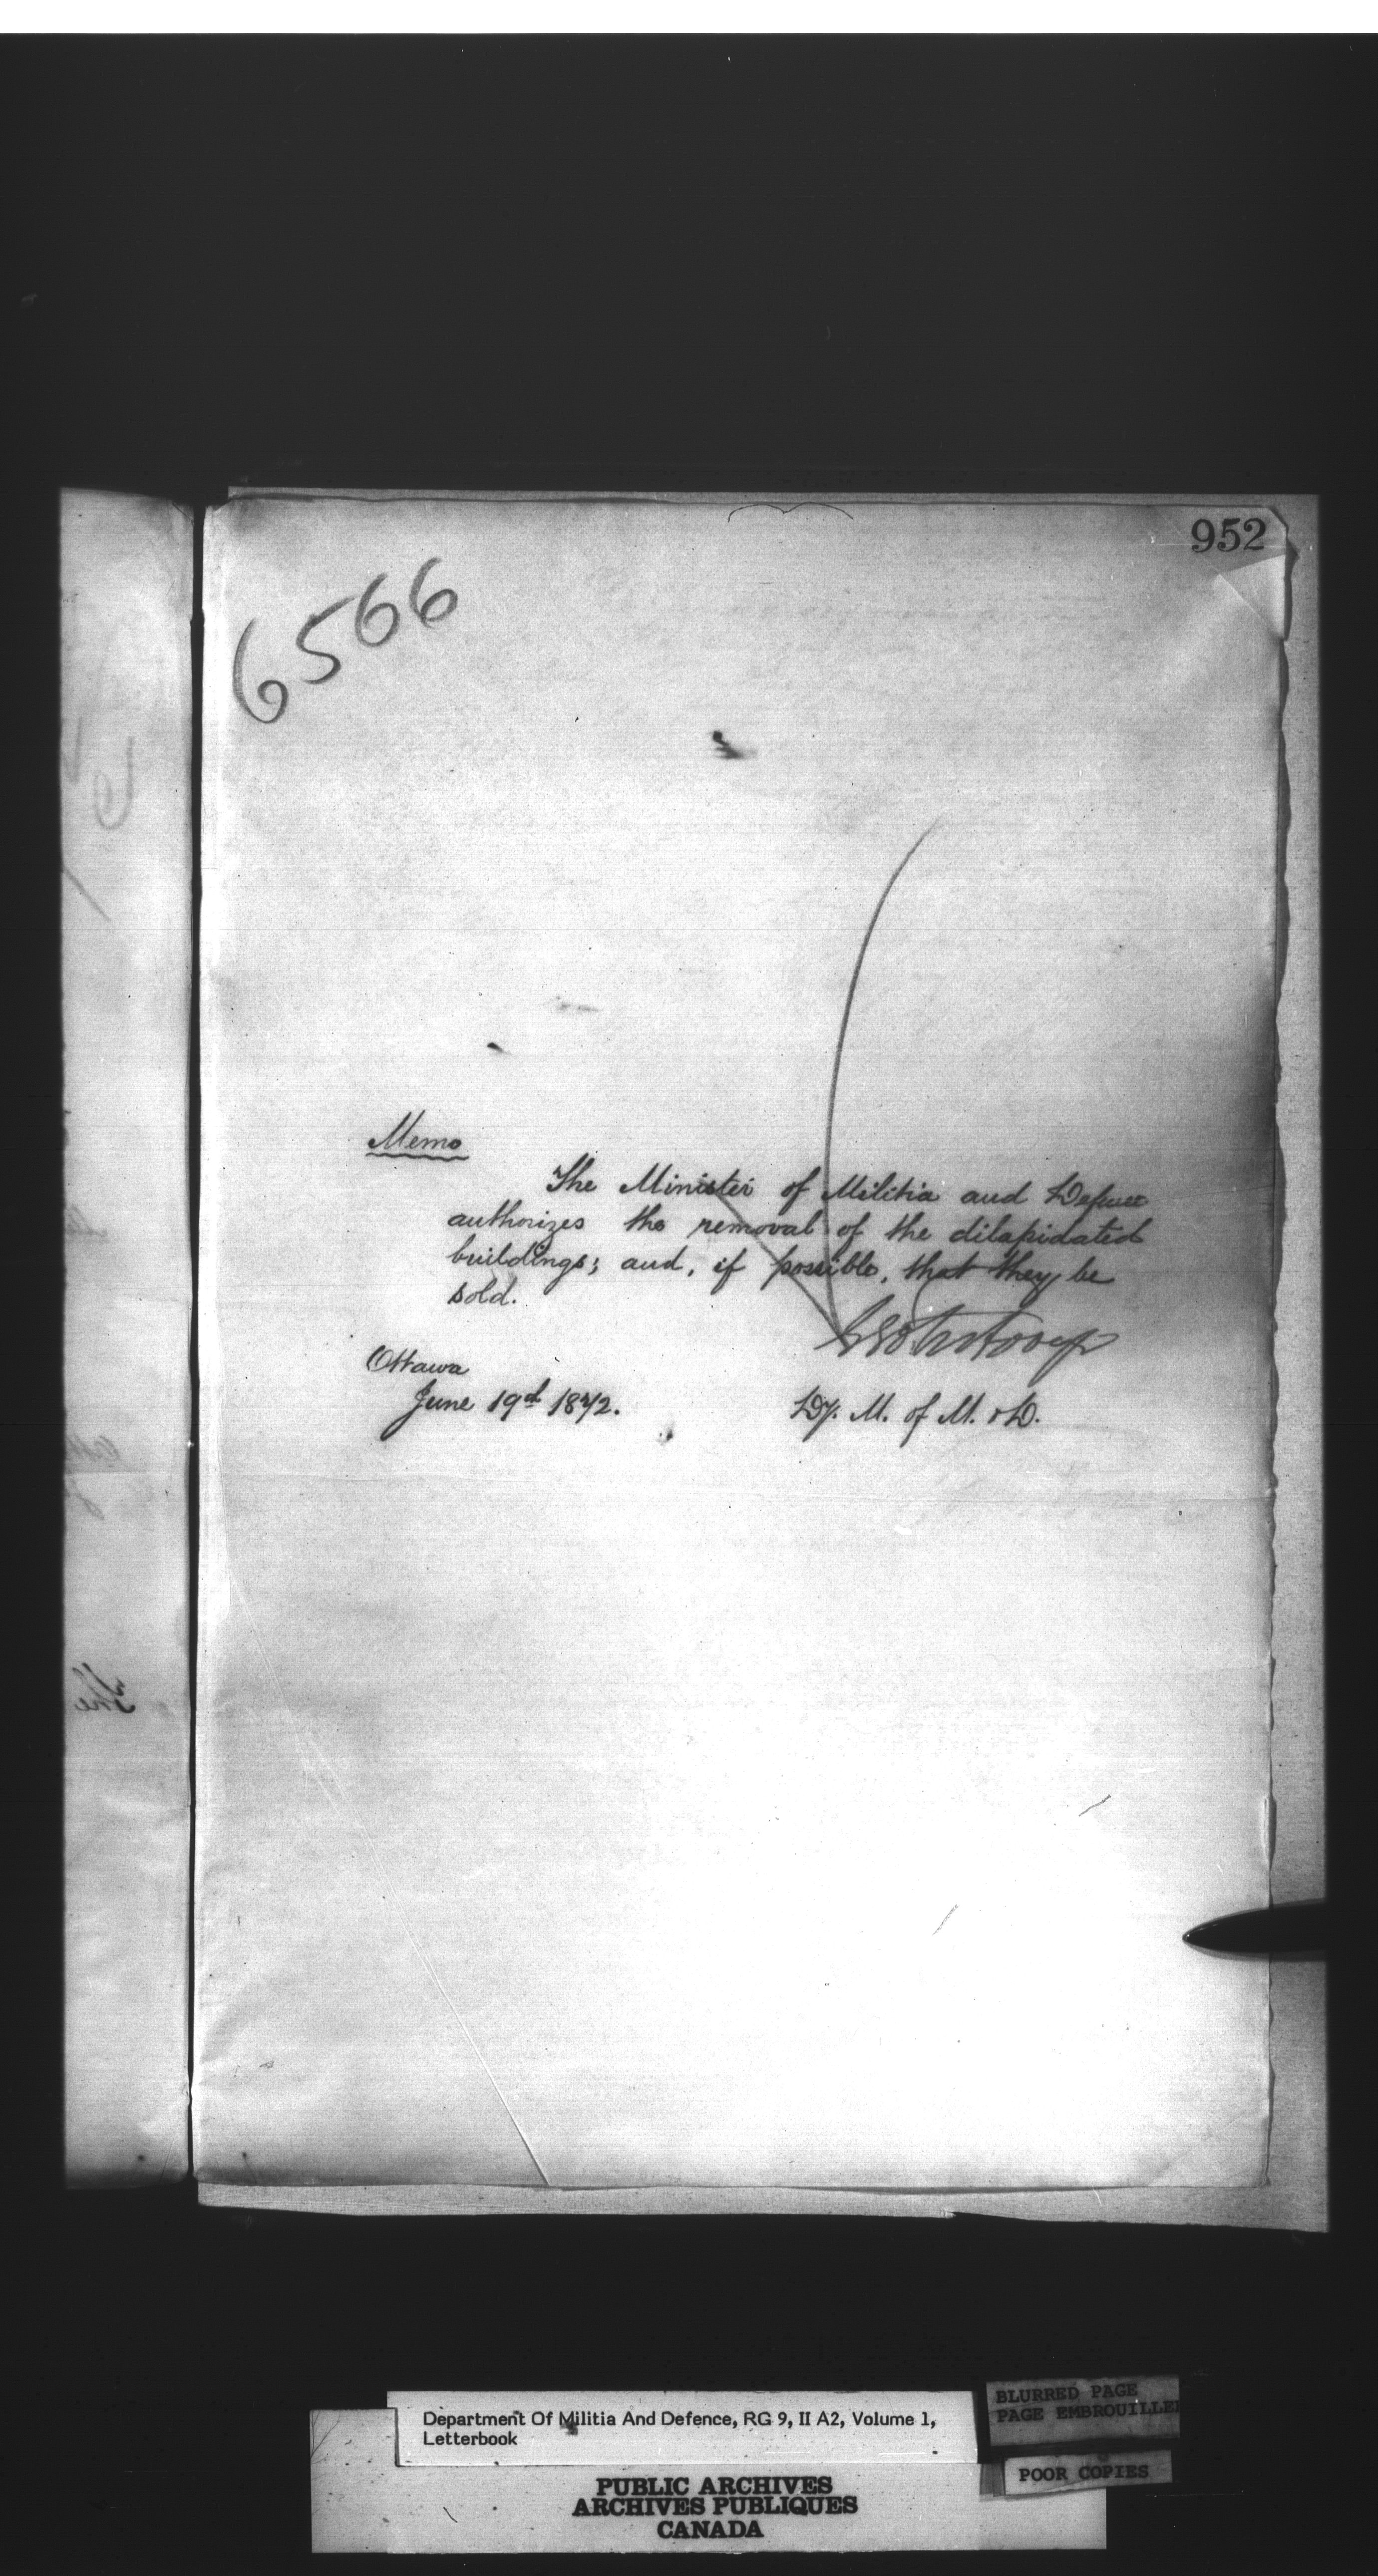 952
6566
Memo
The Minister of Militia and Defence
authorizes the removal of the dilapidated
buildings; and, if possible, that they be
sold.
Ottawa
June 19th 1872.
Dy. M. of M. & D.
The
Department Of Militia And Defence, RG 9, II A2, Volume 1,
Letterbook
BLURRED PAGE
PAGE EMBROUILLEE
POOR COPIES
PUBLIC ARCHIVES
ARCHIVES PUBLIQUES
CANADA